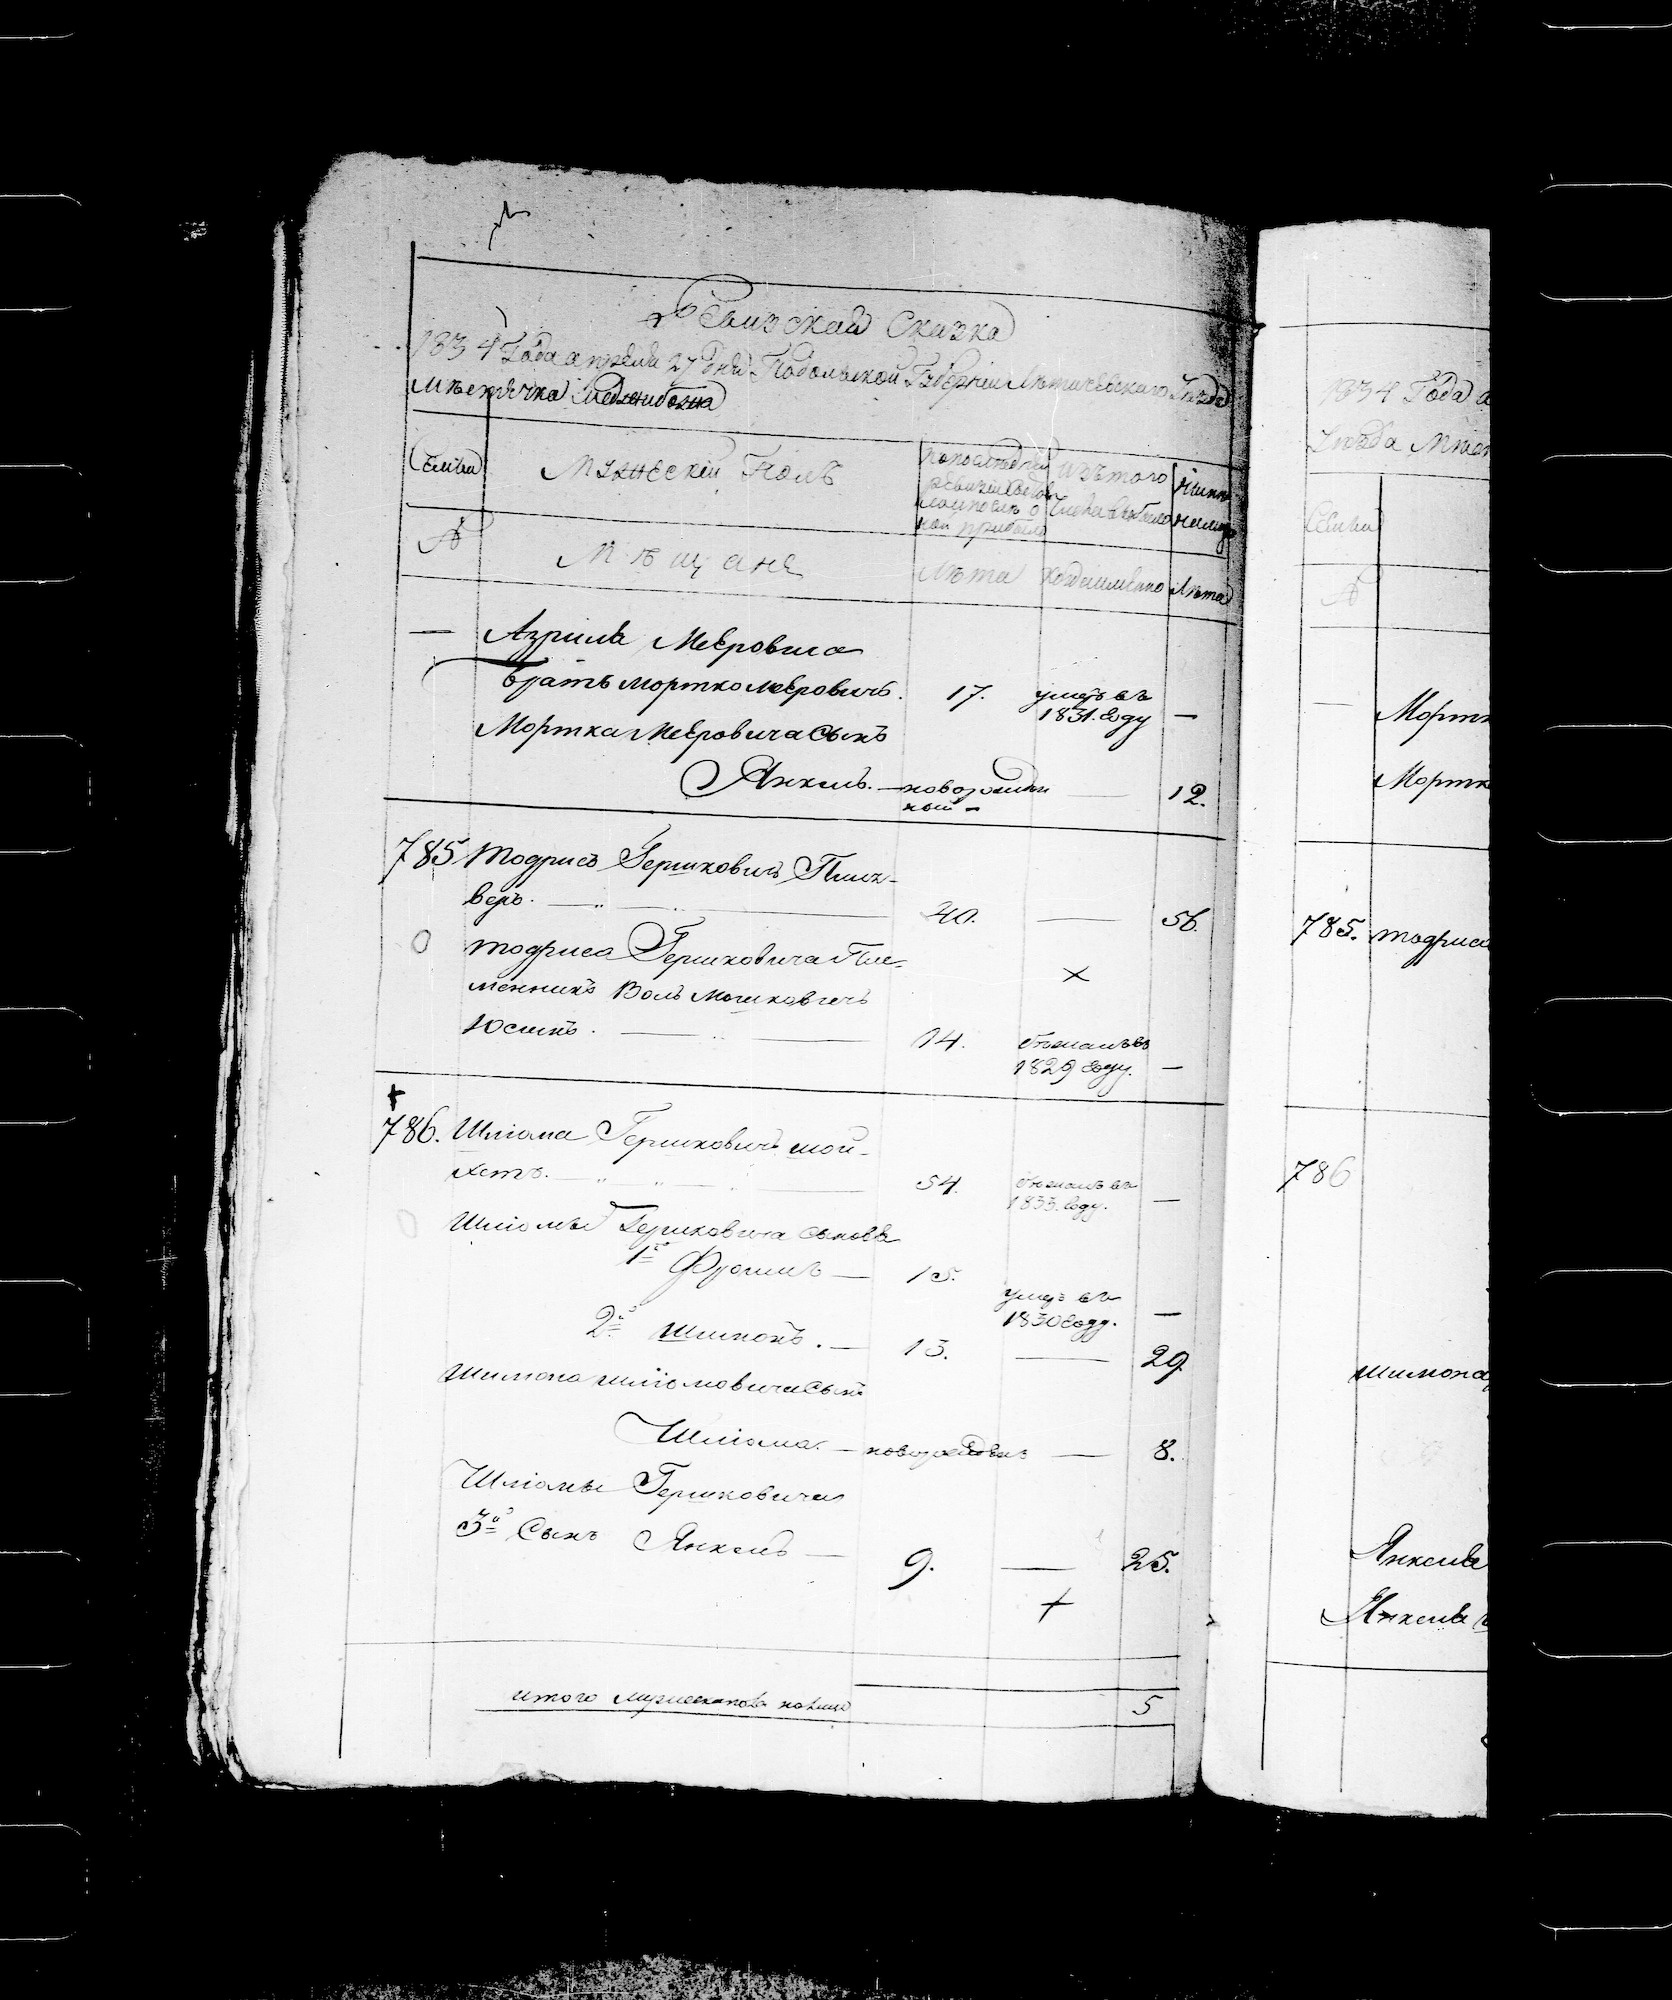 Ревизская Сказка
1834 Года апреля 27 дня Подольской Губернии Летичевского Уезда
Местечка Меджибожа
Семьи
Мужеский Полъ
По последней ревизии состояло и после оной прибыло
Изъ того числа выбыло
Ныне на лицо
№
Мещане
Лета
Когда именно
Лета
— Азриля Мееровича
Братъ Мортко Мееровичъ. 17. умеръ въ 1831. году —
Мортка Мееровича Сынъ
Янкель. — новорожденный — — 12.
785 Тодрисъ Гершковичъ
веръ. — 40. — 56.
0 Тодриса Гершковича Пле-
менникъ Волъ Мошковичъ ×
Юсимъ. — 14. бежалъ въ 1829 году. —
+
786. Шліома Гершковичъ Шой-
хетъ. — 54. бежалъ въ 1833. году. —
Шліомы Гершковича сыновья
1й Фроимъ — 15. умеръ въ 1830 году. —
2й Шимонъ. — 13. — 29.
Шимона Шліомовича сынъ
Шліома. — новорожденъ — 8.
Шліомы Гершковича
3й Сынъ Янкель — 9. — 25.
+
итого мужеска пола на лицо 5
1834 Года а
Уезда Мест
Семьи
№
—
Мортк
Мортк
785. Тодриса
786
Шимона
Янкеля
Янкеля